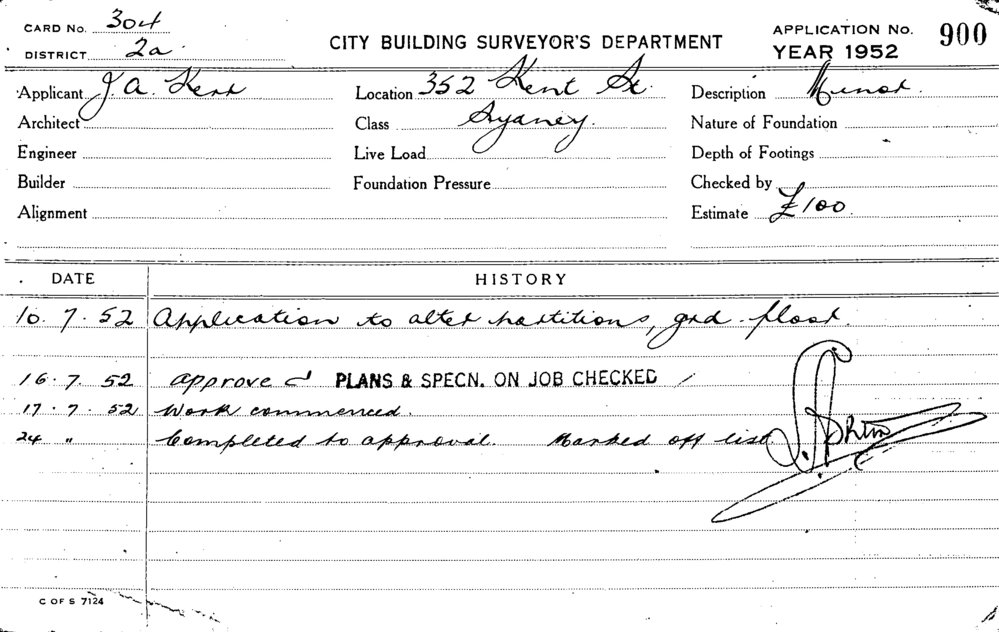 CARD No. 304
DISTRICT 2a.
CITY BUILDING SURVEYOR'S DEPARTMENT
APPLICATION No. 900
YEAR 1952
Applicant J. A. Kerr Location 352 Kent St. Description Minor.
Architect Class Sydney. Nature of Foundation
Engineer Live Load Depth of Footings
Builder Foundation Pressure Checked by
Alignment Estimate £100.
DATE HISTORY
10.7.52 Application to alter partitions, grd. floor.
16.7.52 approved PLANS & SPECN. ON JOB CHECKED
17.7.52 Work commenced.
24 " Completed to approval. Marked off list.
C OF S 7124